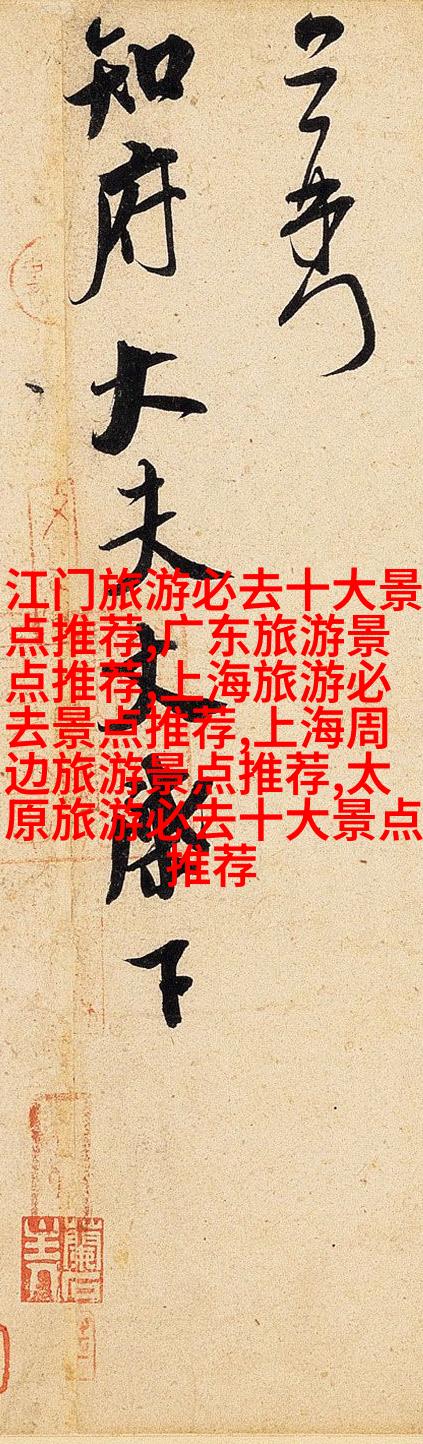 知府大夫丈下
江门旅游必去十大景
点推荐,广东旅游景
点推荐,上海旅游必
去景点推荐,上海周
边旅游景点推荐,太
原旅游必去十大景点
推荐